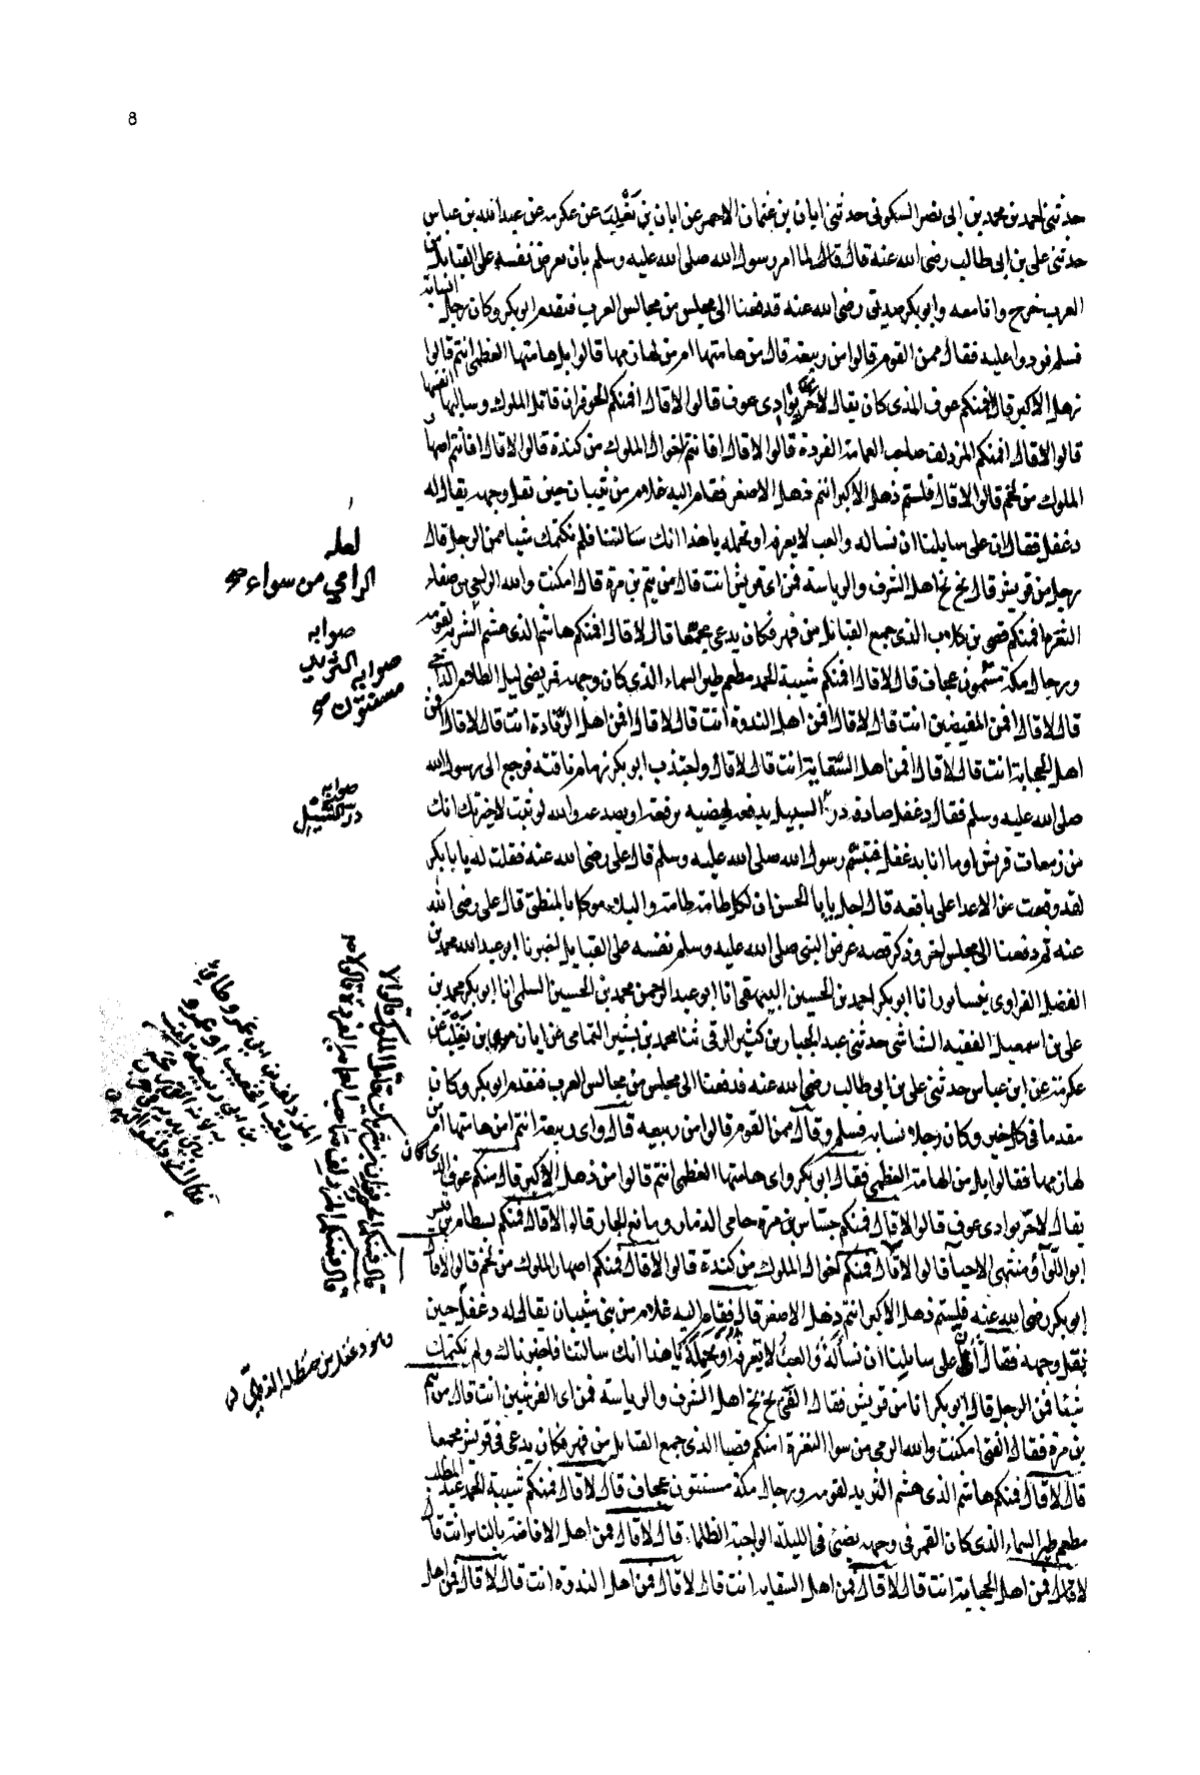 8
حدثني احمد بن محمد بن ابى نصر السكونى حدثنى ابان بن عثمان الاحمر عن ابان بن تغلب عن عكرمه عن عبدالله بن عباس
حدثنى على بن ابى طالب رضى الله عنه قال قال لما امر رسول الله صلى الله عليه وسلم بان يعرض نفسه على القبايل من
العرب خرج وانا معه وابو بكر صديق رضى الله عنه فدفعنا الى مجلس من مجالس العرب فتقدم ابو بكر وكان رجلا نسابة
فسلم فردوا عليه فقال ممن القوم قالوا من ربيعة قال من هامتها ام من لهازمها قالوا بل هامتها العظمى انتم قالوا
ذهل الاكبر قال افمنكم عوف الذى كان يقال لاحر بوادى عوف قالوا لا قال افمنكم الحوفزان قاتل الملوك وسالبها انفسها
قالوا لا قال افمنكم المزدلف صاحب العمامة الفردة قالوا لا قال افانتم اخوال الملوك من كندة قالوا لا قال افانتم اصهار
الملوك من لخم قالوا لا قال فلستم ذهل الاكبر انتم ذهل الاصغر فقام اليه غلام من شيبان حين بقل وجهه يقال له
دغفل فقال ان على سايلنا ان نساله والعب لا يعرفه او تحمله ياهذا انك سالتنا فلم نكتمك شيا فمن الرجل قال
رجل من قريش قال بخ بخ اهل الشرف والرياسة فمن اى قريش انت قال من تيم بن مرة قال امكنت والله الرامى من صفاء
الثغرة افمنكم قصى بن كلاب الذى جمع القبايل من فهر فكان يدعى مجمعا قال لا قال افمنكم هاشم الذى هشم الثريد لقومه
ورجال مكة مسنتون عجاف قال لا قال افمنكم شيبة الحمد مطعم طير السماء الذى كان وجهه قمر يضى ليل الظلام الداجى
قال لا قال افمن المفيضين انت قال لا قال افمن اهل الندوة انت قال لا قال افمن اهل الرفادة انت قال لا قال افمن
اهل الحجابة انت قال لا قال افمن اهل السقاية انت قال لا قال واجتذب ابو بكر زمام ناقته فرجع الى رسول الله
صلى الله عليه وسلم فقال دغفل صادف در السيل يدفعه يهضبه يرفعه او يصدعه والله لو ثبت لاخبرتك انك
من زمعات قريش او ما انا بدغفل فتبسم رسول الله صلى الله عليه وسلم قال على رضى الله عنه فقلت له يابا بكر
لقد وقعت عن الاعرابى على باقعه قال اجل يابا الحسن ان لكل طامة طامة والبلاء موكل بالمنطق قال على رضى الله
عنه ثم دفعنا الى مجلس اخر وذكر قصه عرض النبى صلى الله عليه وسلم نفسه على القبايل اخبرنا ابو عبد الله محمد بن
الفضل الفراوى بنيسابور انا ابو بكر احمد بن الحسين البيهقى انا ابو عبد الرحمن محمد بن الحسين السلمى انا ابو بكر محمد بن
على بن اسمعيل الفقيه الشاشى حدثنى عبد الجبار بن كثير الرقى ثنا محمد بن بشير عن ابان بن تغلب عن
عكرمة عن ابن عباس حدثنى على بن ابى طالب رضى الله عنه فدفعنا الى مجلس من مجالس العرب فتقدم ابو بكر وكان
مقدما فى كل خير وكان رجلا نسابه فسلم وقال ممن القوم قالوا من ربيعه قال واى ربيعة انتم امن هامتها ام من
لهازمها فقالوا بل من الهامة العظمى فقال ابو بكر واى هامتها العظمى انتم قالوا من ذهل الاكبر قال منكم عوف الذى كان
يقال لاحر بوادى عوف قالوا لا قال فمنكم جساس بن مرة حامى الذمار ومانع الجار قالوا لا قال فمنكم بسطام بن قيس
ابو اللوآ ومنتهى الاحيآ قالوا لا قال فمنكم اخوال الملوك من كندة قالوا لا قال فمنكم اصهار الملوك من لخم قالوا لا قال
ابو بكر رضى الله عنه فلستم ذهل الاكبر انتم ذهل الاصغر قال فقام اليه غلام من بنى شيبان يقال له دغفل حين
بقل وجهه فقال ان على سايلنا ان نسأله والعب لا يعرفه او نحمله ياهذا انك سالتنا فاخبرناك ولم نكتمك
شيئا فمن الرجل قال ابو بكر انا من قريش فقال الفتى بخ بخ اهل الشرف والرياسة فمن اى القرشيين انت قال من تيم
بن مرة فقال الفتى امكنت والله الرمى من سوا الثغرة امنكم قصيا الذى جمع القبايل من فهر فكان يدعى فى قريش مجمعا
قال لا قال فمنكم هاشم الذى هشم الثريد لقومه ورجال مكة مسنتون عجاف قال لا قال فمنكم شيبة الحمد عبد المطلب
مطعم طير السماء الذى كان القمر فى وجهه يضئ فى الليلة الداجية الظلماء قال لا قال فمن اهل الافاضة بالناس انت قال
لا قال فمن اهل الحجابة انت قال لا قال فمن اهل السقايه انت قال لا قال فمن اهل الندوة انت قال لا قال فمن اهل
لعله
الرامي من سواء
صوابه
صوابه الثريد
مسنتون
صوابه
در السيل
قال فمنكم الحوفزان بن شريك قاتل الملوك قالوا لا
قال فمنكم المزدلف صاحب
هو دغفل بن حنظله